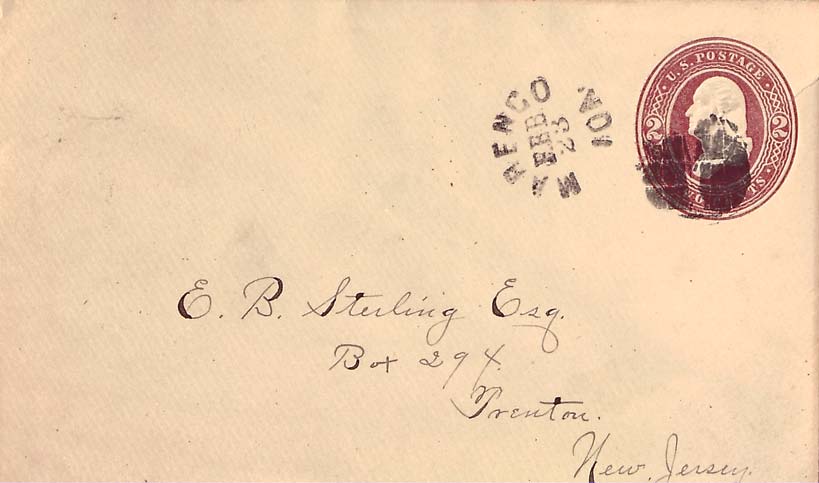 U.S. POSTAGE
2 2
MARENGO IOWA
FEB
23
E. B. Sterling Esq.
Box 294.
Trenton.
New Jersey.